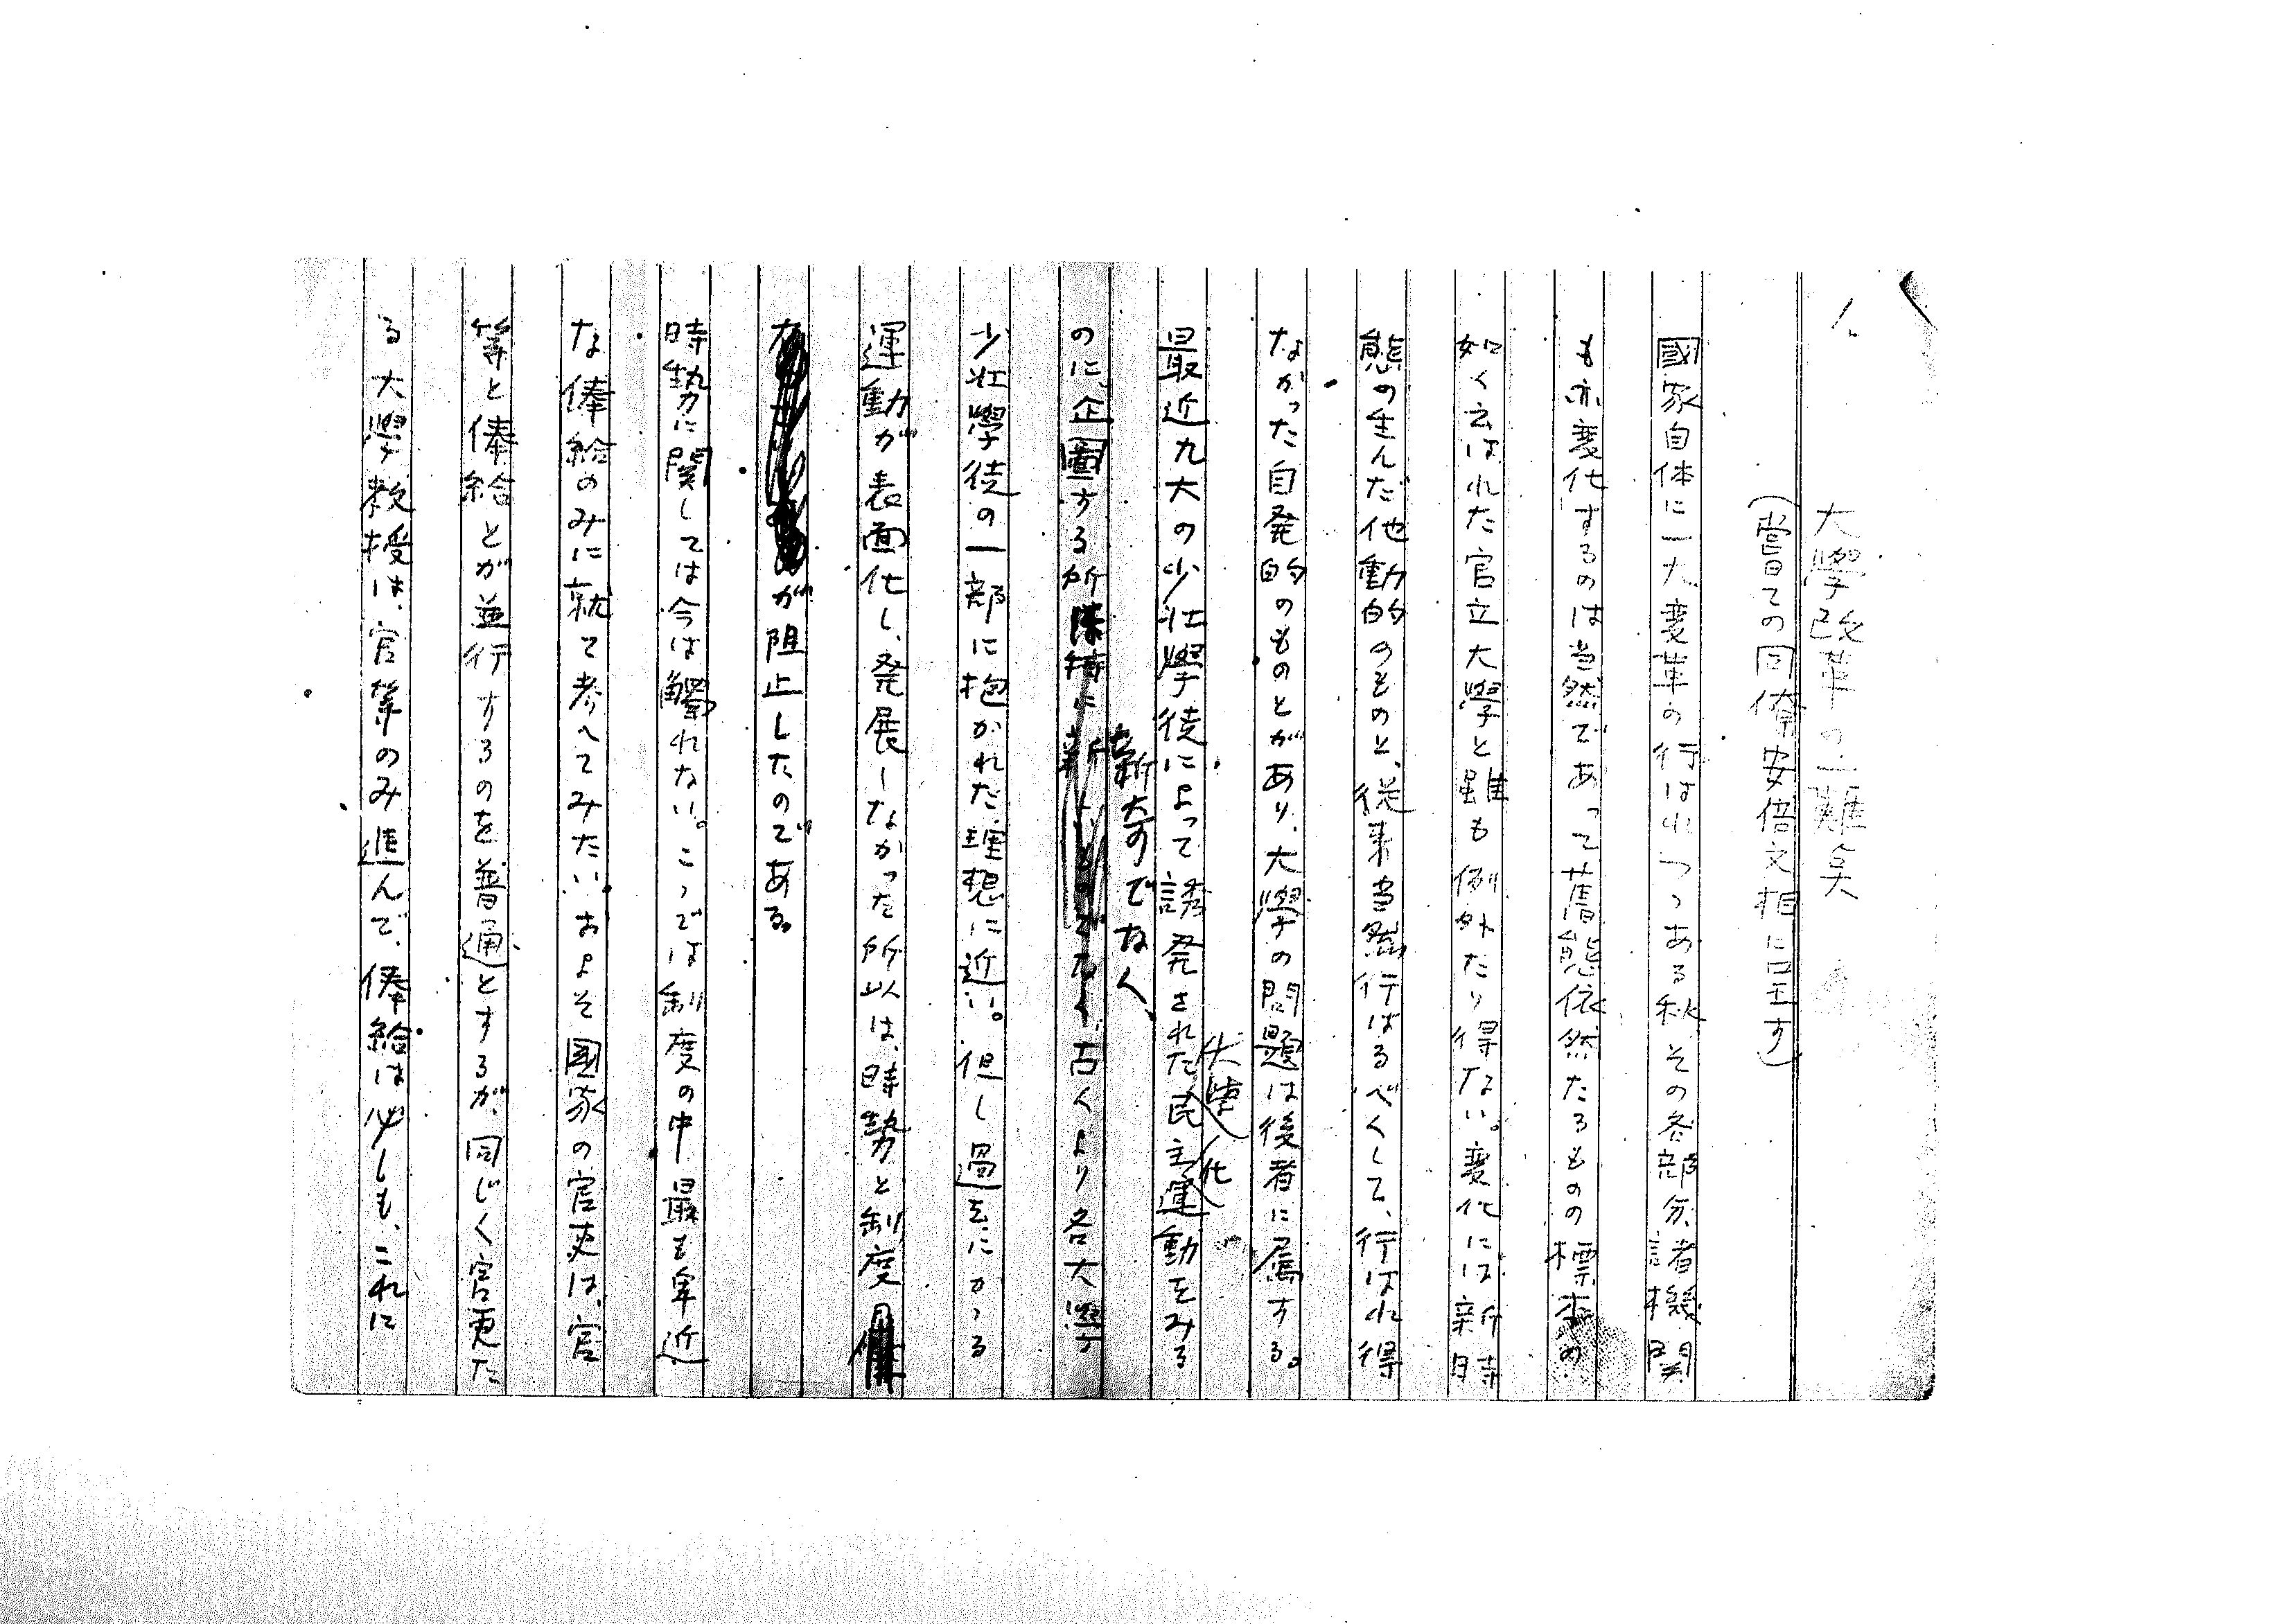 1.
大學改革の一難矣
(嘗ての同僚安倍文相に呈す)
國家自体に一大変革の行はれつゝある秋、その各部分、諸機関
も亦変化するのは当然であって舊態依然たるものの標本の
如く云はれた官立大學と雖も例外たり得ない。変化には新時
態の生んだ他動的のものと、従来当然行はるべくして、行はれ得
なかった自発的のものとがあり、大學の問題は後者に属する。
最近九大の少壮學徒によって誘発された民主運動をみる
大學 化
新奇でなく、
のに、企圖する所 古くより各大學
少壮學徒の一部に抱かれた理想に近い。但し過去にかゝる
運動が表面化し、発展しなかった所以は、時勢と制度
が阻止したのである。
時勢に関しては今は觸れない。こゝでは制度の中最も卑近
な俸給のみに就て考へてみたい。およそ國家の官吏は、官
等と俸給とが並行するのを普通とするが、同じく官吏た
る大學教授は、官等のみ進んで、俸給は必しも、これに